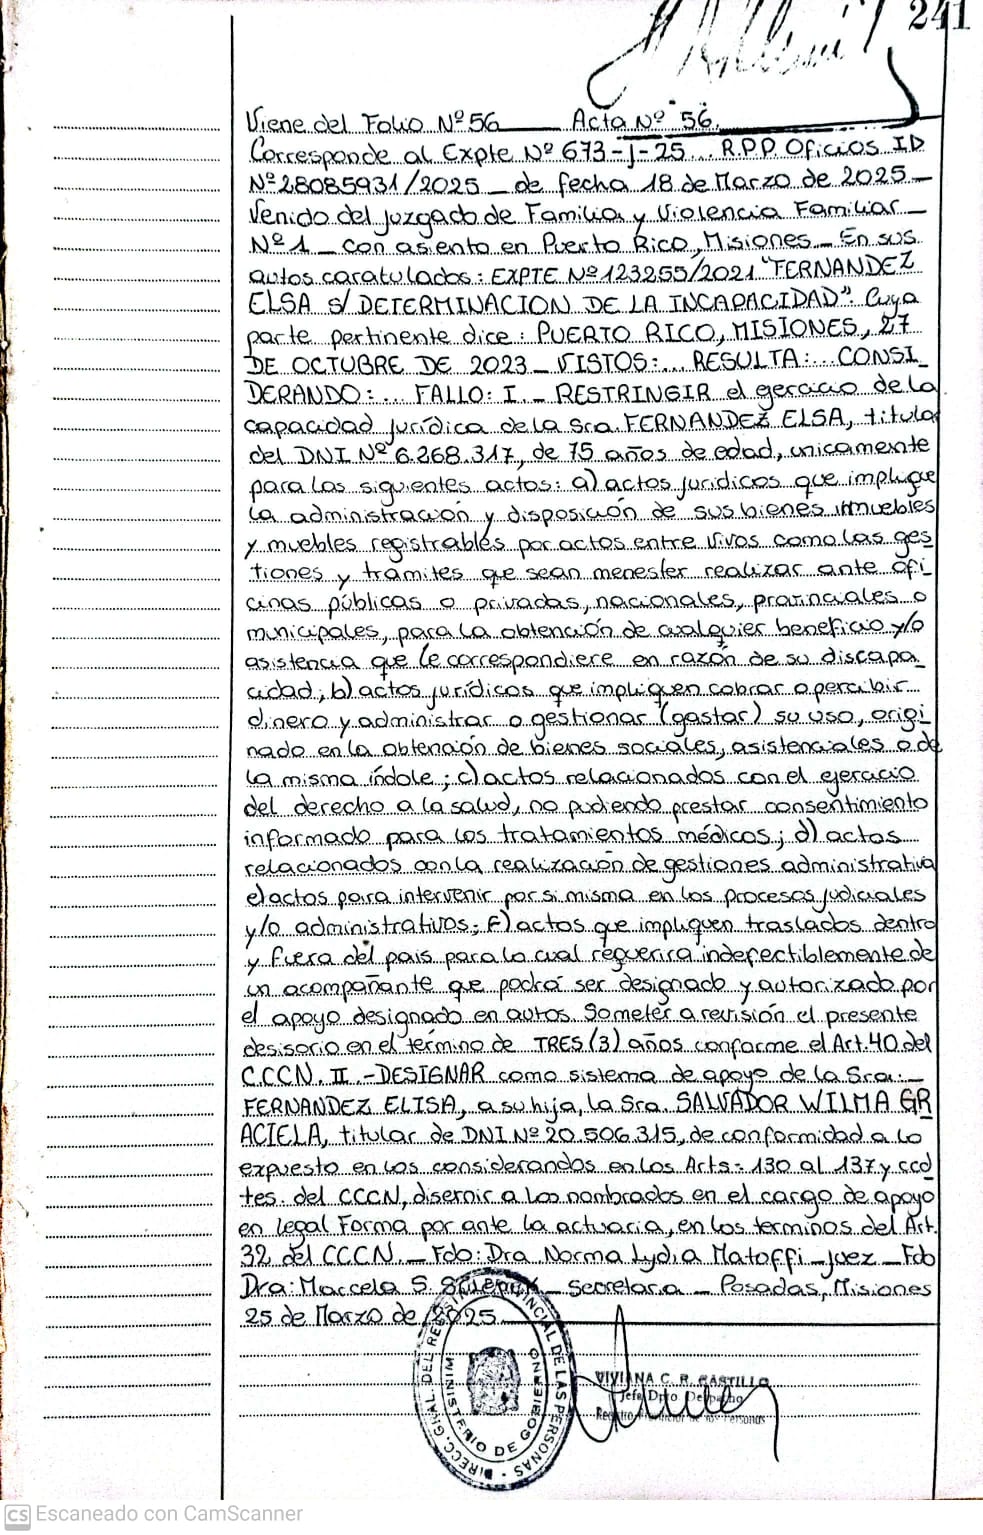 241
Viene del Folio Nº 56 Acta Nº 56.
Corresponde al Expte Nº 673-J-25... R.P.P. Oficios ID
Nº 28085931/2025 _ de fecha 18 de Marzo de 2025 _
Venido del Juzgado de Familia y Violencia Familiar _
Nº 1 _ con asiento en Puerto Rico, Misiones _ En sus
autos caratulados: EXPTE Nº 123255/2021 "FERNANDEZ
ELSA S/ DETERMINACION DE LA INCAPACIDAD". Cuya
parte pertinente dice: PUERTO RICO, MISIONES, 27
DE OCTUBRE DE 2023 _ VISTOS:... RESULTA:... CONSI_
DERANDO:... FALLO: I._ RESTRINGIR el gercicio de la
capacidad jurídica de la Sra. FERNANDEZ ELSA, titular
del DNI Nº 6.268.317, de 75 años de edad, unicamente
para los siguientes actos: a) actos juridicos que implique
la administración y disposición de sus bienes inmuebles
y muebles registrables por actos entre vivos como las ges_
tiones y tramites que sean menester realizar ante ofi_
cinas públicas o privadas, nacionales, provinciales o
municipales, para la obtención de cualquier beneficio y/o
asistencia que le correspondiere en razón de su discapa_
cidad; b) actos jurídicos que impliquen cobrar o percibir
dinero y administrar o gestionar (gastar) su uso, origi_
nado en la obtención de bienes sociales, asistenciales o de
la misma índole; c) actos relacionados con el ejercicio
del derecho a la salud, no pudiendo prestar consentimiento
informado para los tratamientos médicos; d) actos
relacionados con la realización de gestiones administrativa
e) actos para intervenir por si misma en los procesos judiciales
y/o administrativos; F) actos que impliquen traslados dentro
y fuera del pais para lo cual requerira indefectiblemente de
un acompañante que podrá ser designado y autorizado por
el apoyo designado en autos. Someter a revisión el presente
desisorio en el término de TRES (3) años conforme el Art. 40 del
C.C.C.N. II.-DESIGNAR como sistema de apoyo de la Sra: _
FERNANDEZ ELISA, a su hija, la Sra. SALVADOR WILMA GR
ACIELA, titular de DNI Nº 20.506.315, de conformidad a lo
expuesto en los considerandos en los Arts= 130 al 137 y ccd
tes. del CCCN, disernir a los nombrados en el cargo de apoyo
en legal Forma por ante la actuaria, en los terminos del Art.
32 del CCCN. _ Fdo: Dra Norma Lydia Matoffi _ Juez _ Fdo
Dra: Marcela S. _ Secretaria _ Posadas, Misiones
25 de Marzo de 2025.
DIRECC. GRAL. DEL REGISTRO PROVINCIAL DE LAS PERSONAS
MINISTERIO DE GOBIERNO
VIVIANA C. R. CASTILLO
Jefa Dpto. Despacho
Registro Provincial de las Personas
CS Escaneado con CamScanner